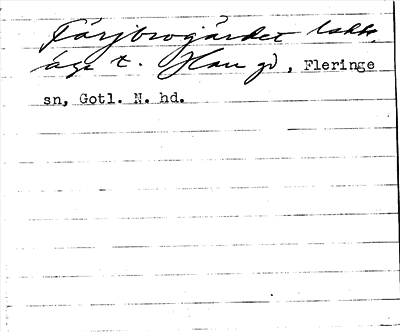 Färjbrogärdet
äga t. Hau gd, Fleringe
sn, Gotl. N. hd.